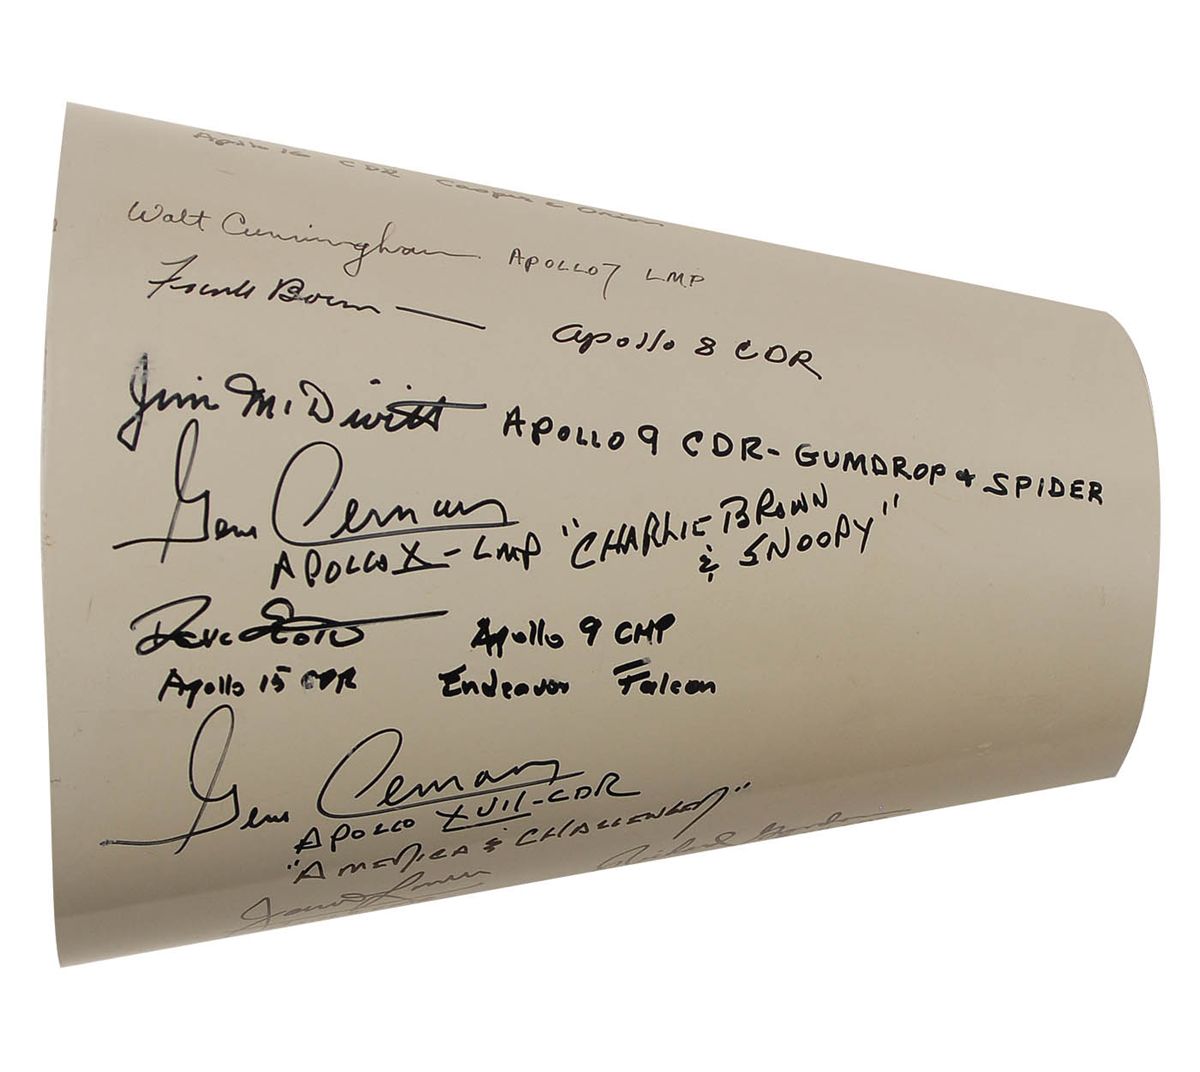 Apollo 16 CDR Casper & Orion
Walt Cunningham APOLLO 7 LMP
Frank Borman Apollo 8 CDR
Jim McDivitt APOLLO 9 CDR - GUMDROP & SPIDER
Gene Cernan
APOLLO X - LMP "CHARLIE BROWN & SNOOPY"
Dave Scott Apollo 9 CMP
Apollo 15 CDR Endeavor Falcon
Gene Cernan
APOLLO XVII - CDR
"AMERICA & CHALLENGER"
Richard Gordon
James Lovell